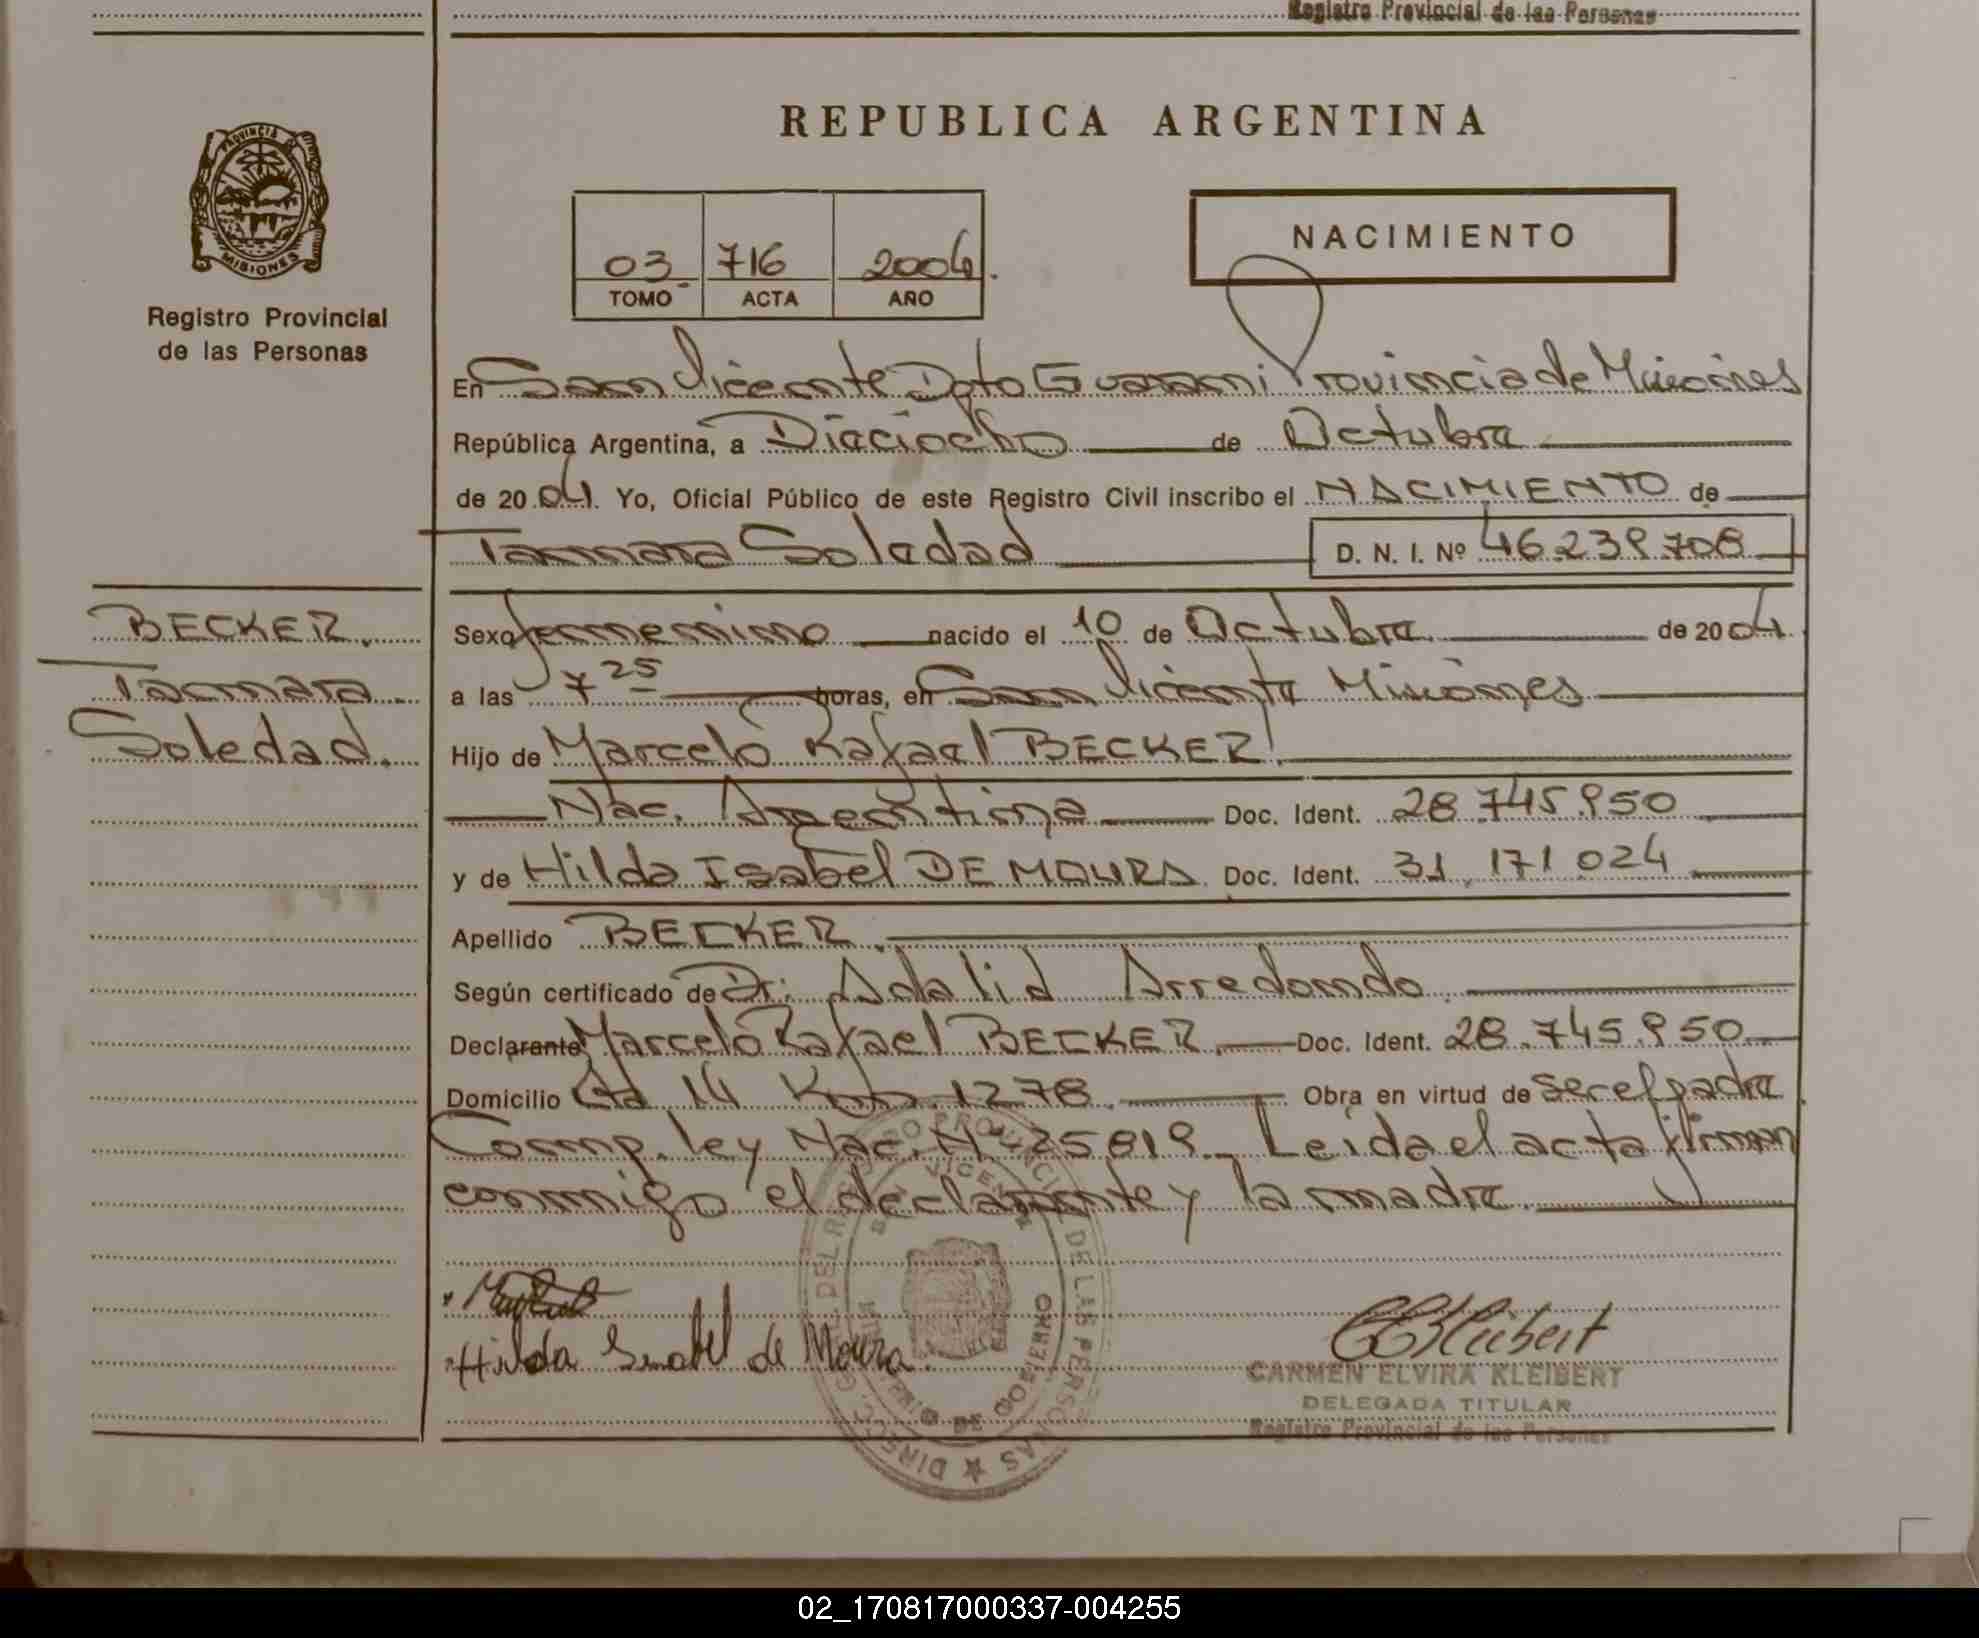 Registro Provincial de las Personas
REPUBLICA ARGENTINA
PROVINCIA
MISIONES
Registro Provincial
de las Personas
NACIMIENTO
03 716 2004.
TOMO ACTA AÑO
En San Vicente Dpto Guarani Provincia de Misiones
República Argentina, a Dieciocho de Octubre
de 2004. Yo, Oficial Público de este Registro Civil inscribo el NACIMIENTO de
Tamara Soledad D. N. I. Nº 46.239.708
BECKER.
Tamara
Soledad.
Sexo femenino nacido el 10 de Octubre de 2004.
a las 7 25 horas, en San Vicente Misiones
Hijo de Marcelo Rafael BECKER.
Nac. Argentina Doc. Ident. 28.745.950
y de Hilda Isabel DE MOURA Doc. Ident. 31.171.024
Apellido BECKER.
Según certificado de Dr: Adalid Arredondo.
Declarante Marcelo Rafael BECKER. Doc. Ident. 28.745.950
Domicilio Km. 1278. Obra en virtud de ser el padre
Comp. ley Nac. Nº 25819. Leida el acta firman
conmigo el declarante y la madre.
Hilda Isabel de Moura.
DIRECC. GRAL. DEL REGISTRO PROVINCIAL DE LAS PERSONAS
SAN VICENTE
MISIONES
CARMEN ELVIRA KLEIBERT
DELEGADA TITULAR
Registro Provincial de las Personas
02_170817000337-004255